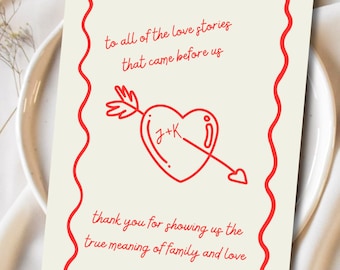 to all of the love stories
that came before us
J+K
thank you for showing us the
true meaning of family and love